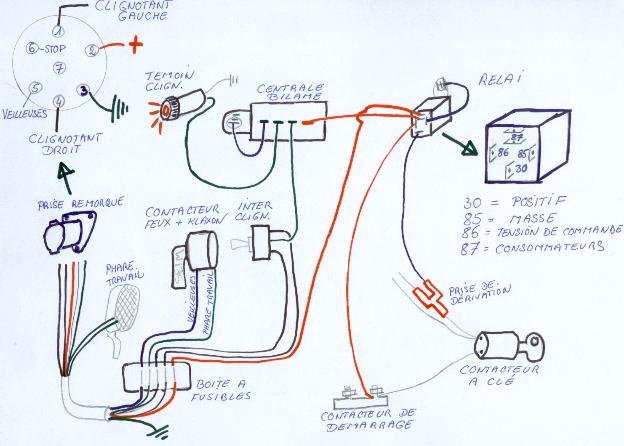 CLIGNOTANT
GAUCHE
1
6 -STOP
2
+
7
5
3
VEILLEUSES
4
CLIGNOTANT
DROIT
TEMOIN
CLIGN.
CENTRALE
BILAME
RELAI
87
86
85
30
30 = POSITIF
85 = MASSE
86 = TENSION DE COMMANDE
87 = CONSOMMATEURS
PRISE REMORQUE
PHARE
TRAVAIL
CONTACTEUR
FEUX + KLAXON
INTER
CLIGN.
VEILLEUSES
PHARE TRAVAIL
PRISE DE
DÉRIVATION
CONTACTEUR
A CLÉ
BOITE A
FUSIBLES
CONTACTEUR DE
DEMARRAGE